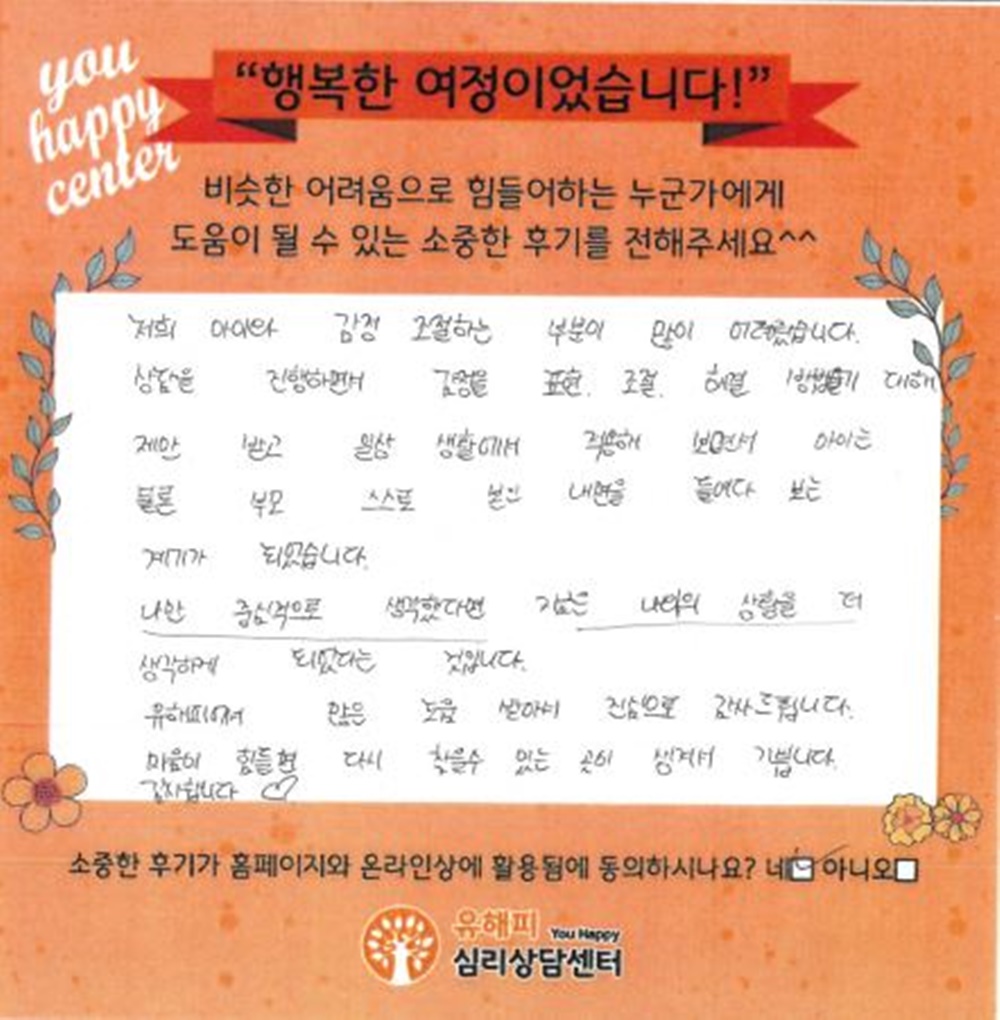 you
happy
center
“행복한 여정이었습니다!”
비슷한 어려움으로 힘들어하는 누군가에게
도움이 될 수 있는 소중한 후기를 전해주세요^^
저희 아이와 감정 조절하는 부분이 많이 어려웠습니다.
상담을 진행하면서 감정을 표현. 조절. 해결 대해
제안 받고 일상 생활에서 적용해 보면서 아이는
물론 부모 스스로 본인 내면을 들여다 보는
계기가 되었습니다.
나만 중심적으로 생각했다면 지금은 상황을 더
생각하게 되었다는 것입니다.
유해피에서 많은 도움 받아서 진심으로 감사드립니다.
마음이 힘들면 다시 찾을수 있는 곳이 생겨서 기쁩니다.
감사합니다 ♡
소중한 후기가 홈페이지와 온라인상에 활용됨에 동의하시나요? 네☑ 아니오☐
유해피 You Happy
심리상담센터